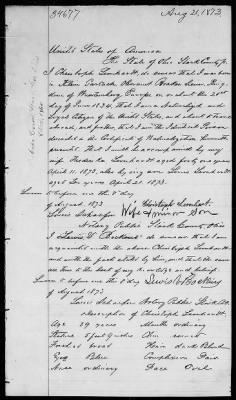 34677
Aug 21, 1873
United States of America
The State of Ohio Stark County ss.
I Christoph Leonhardt, do swear that I was born
in
of Wurtemberg Europe, on or about the 20th
day of June 1834, that I am a Naturalized and
Loyal Citizen of the United States, and about to travel
abroad, and further that I am the Identical Person
described in the Certificate of Naturalization herewith
presented. That I will be accompanied by my
wife Frederika Leonhardt aged forty one years
April 11, 1873, also by my son Louis Leonhardt
aged six years April 21. 1873.
Sworn to before me this 8 day
of August 1873
Louis Schaefer
Christoph Leonhardt
Wife & minor Son
Notary Public Stark County Ohio
I Lewis do swear that I am
acquainted with the above Christoph Leonhardt
and with the facts stated by him, and that the same
are true to the best of my knowledge and belief.
Sworn to before me this 8 day
of August 1873
Louis Schaefer Notary Public Stark Co.
Description of Christoph Leonhardt.
Age 39 years Mouth ordinary
Stature 5 feet 9 inches Chin round
Forehead broad Hair dark Blond
Eyes Blue Complexion Fair
Nose ordinary Face Oval